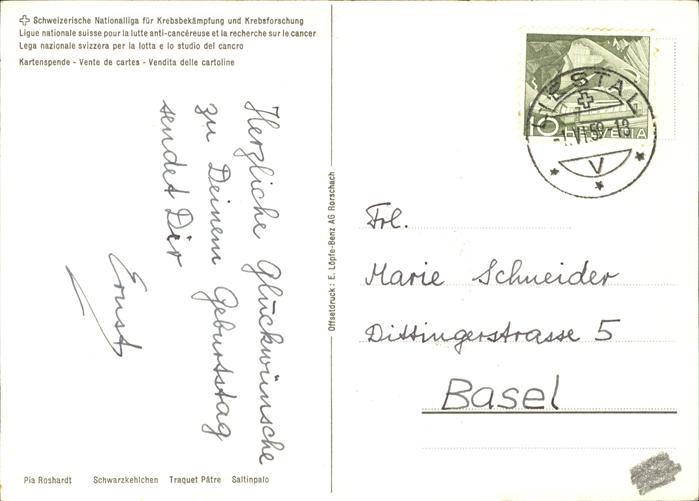 Schweizerische Nationalliga für Krebsbekämpfung und Krebsforschung
Ligue nationale suisse pour la lutte anti-cancéreuse et la recherche sur le cancer
Lega nazionale svizzera per la lotta e lo studio del cancro
Kartenspende - Vente de cartes - Vendita delle cartoline
Herzliche Glückwünsche
zu Deinem Geburtstag
sendet Dir
Ernst
Pia Roshardt Schwarzkehlchen Traquet Pâtre Saltinpalo
Offsetdruck: E. Löpfe-Benz AG Rorschach
10 HELVETIA
LIESTAL
VI.59-13
V
Frl.
Marie Schneider
Dittingerstrasse 5
Basel